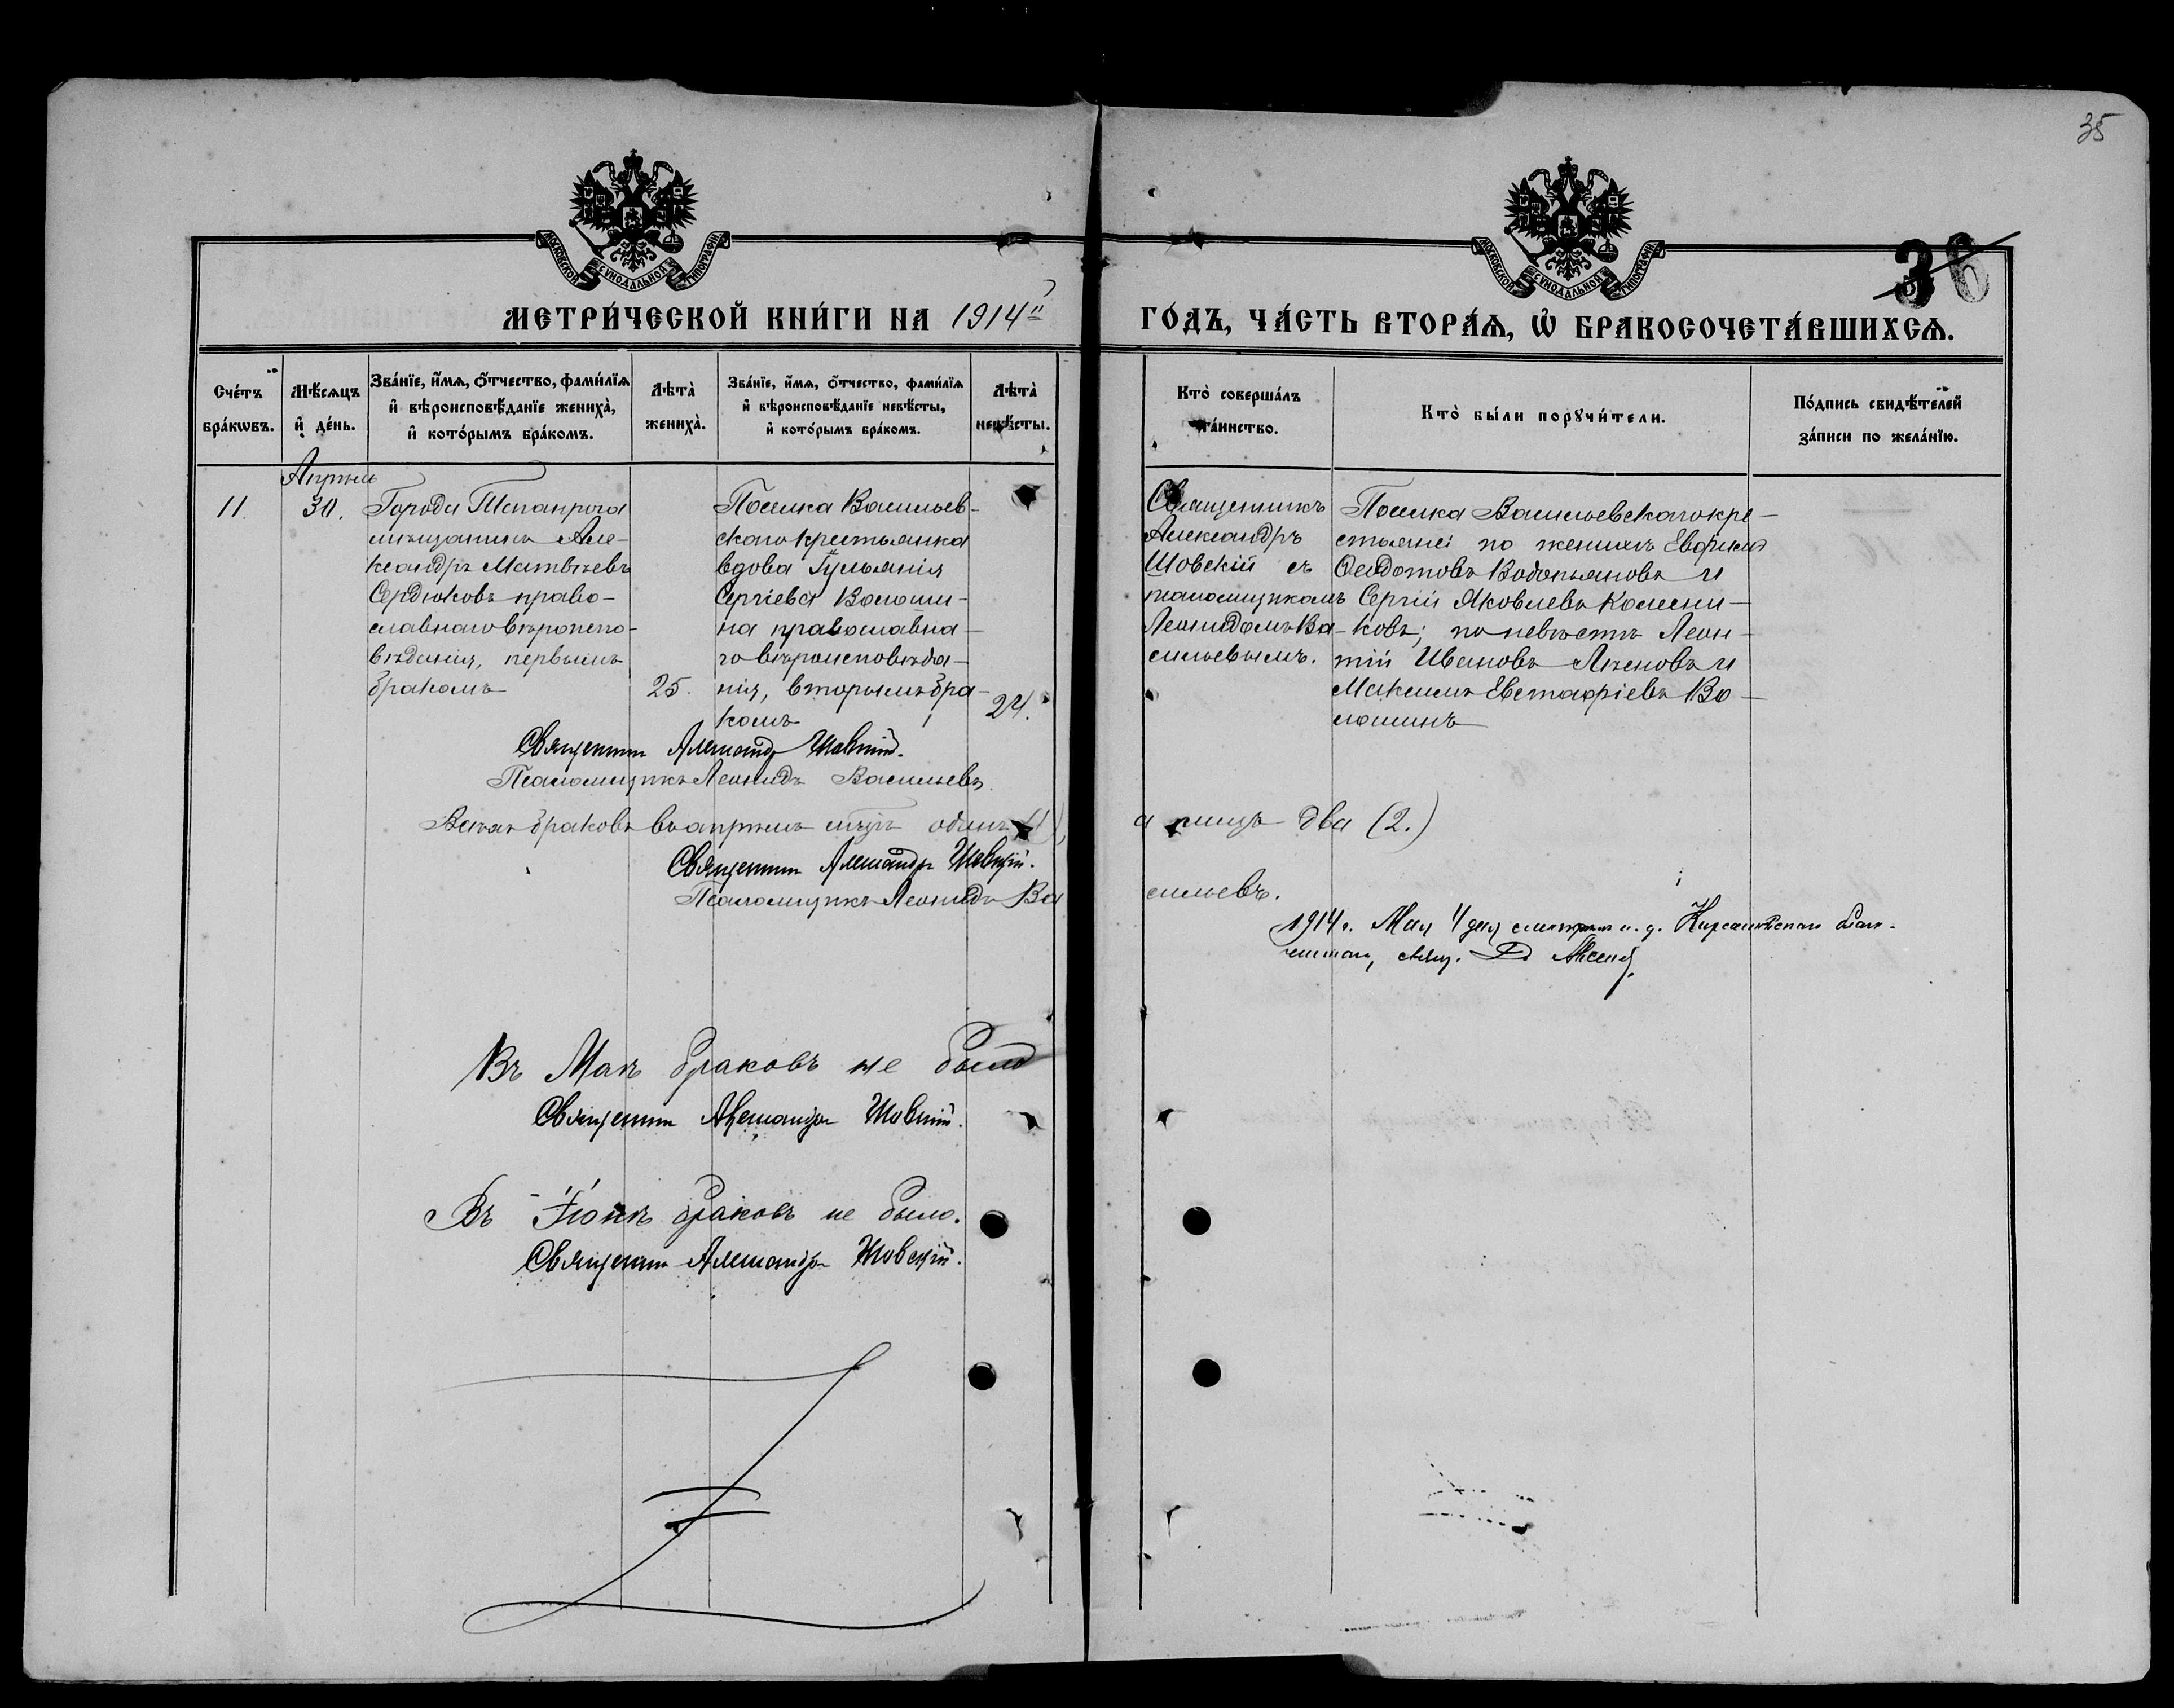 35
36
МОСКОВСКОЙ СѴНОДАЛЬНОЙ ТИПОГРАФІИ
МОСКОВСКОЙ СѴНОДАЛЬНОЙ ТИПОГРАФІИ
МЕТРИ́ЧЕСКОЙ КНИ́ГИ НА 1914й ГО́ДЪ, ЧА́СТЬ ВТОРА́Ѧ, Ѽ БРАКОСОЧЕТА́ВШИХСѦ.
Сче́тъ
бра́кѡвъ.
Мѣ́сѧцъ
и҆ де́нь.
Зва́нїе, и҆́мѧ, ѻ҆́тчество, фами́лїѧ
и҆ вѣроисповѣ́данїе женихà,
и҆ кото́рымъ бра́комъ.
Лѣтà
женихà.
Зва́нїе, и҆́мѧ, ѻ҆́тчество, фами́лїѧ
и҆ вѣроисповѣ́данїе невѣ́сты,
и҆ кото́рымъ бра́комъ.
Лѣтà
невѣ́сты.
Кто̀ соверша́лъ
та́инство.
Кто̀ бы́ли порꙋчи́тели.
По́дпись свидѣ́телей
за́писи по жела́нїю.
11.
Апрѣль
30.
Города Таганрога
мѣщанинъ Але-
ксандръ Матвѣевъ
Сердюковъ право-
славнаго вѣроиспо-
вѣданія, первымъ
бракомъ
25.
Поселка Васильев-
скаго крестьянка
вдова Іульянія
Сергіева Волоши-
на православна-
го вѣроисповѣда-
нія, вторымъ бра-
комъ
24.
Священникъ
Александръ
Шовскій съ
псаломщикомъ
Леонидомъ Ва-
сильевымъ.
Поселка Васильевскаго кре-
стьяне: по женихѣ Евфимъ
Ѳеодотовъ Водопьяновъ и
Сергій Яковлевъ Колесни-
ковъ; по невѣстѣ Леон-
тій Ивановъ Аксеновъ и
Максимъ Евстафіевъ Во-
лошинъ
Священникъ Александръ Шовскій.
Псаломщикъ Леонидъ Васильевъ.
Всѣхъ браковъ въ апрѣлѣ мѣсяцѣ одинъ (1) а лицъ два (2.)
Священникъ Александръ Шовскій.
Псаломщикъ Леонидъ Васильевъ.
1914 г. Мая 4 дня смотрѣлъ и. д. благо-
чиннаго, свящ.
Въ Маѣ браковъ не было
Священникъ Александръ Шовскій.
Въ Іюнѣ браковъ не было.
Священникъ Александръ Шовскій.